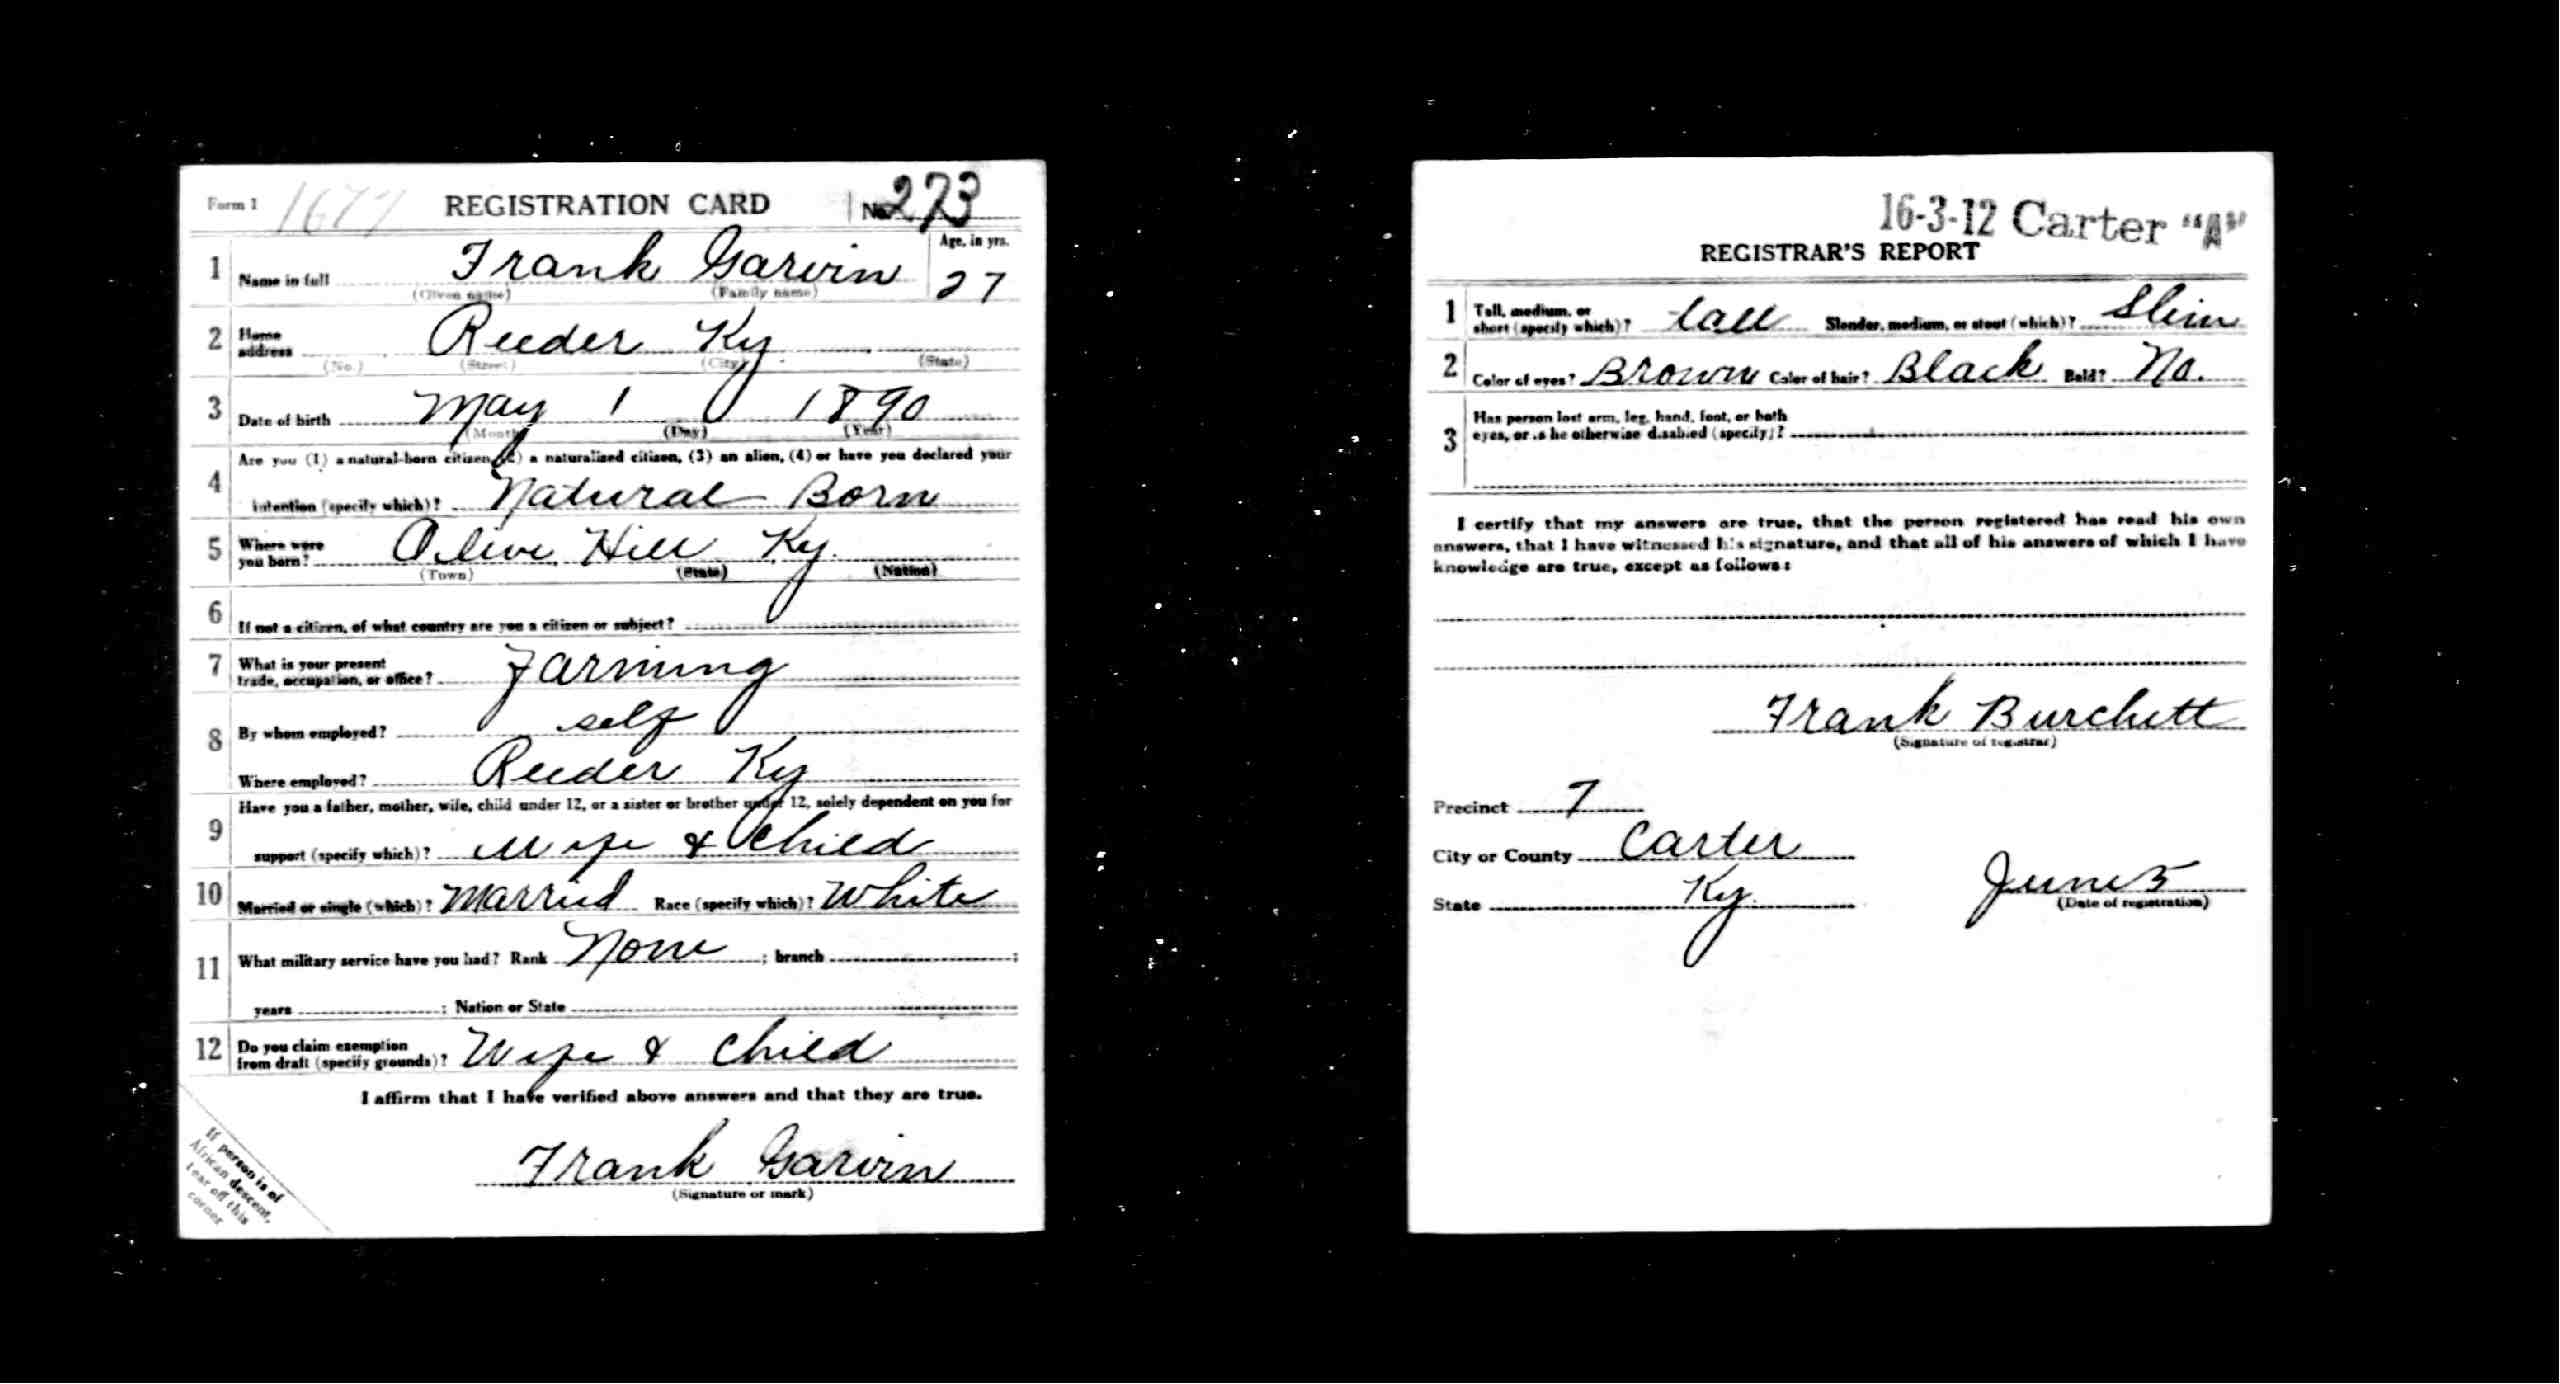 Form 1 1677 REGISTRATION CARD No. 273
1 Name in full Frank Garvin Age, in yrs. 27
(Given name) (Family name)
2 Home address Reeder Ky
(No.) (Street) (City) (State)
3 Date of birth May 1 1890
(Month) (Day) (Year)
4 Are you (1) a natural-born citizen, (2) a naturalized citizen, (3) an alien, (4) or have you declared your
intention (specify which)? Natural Born
5 Where were you born? Olive Hill Ky.
(Town) (State) (Nation)
6 If not a citizen, of what country are you a citizen or subject?
7 What is your present
trade, occupation, or office? Farming
8 By whom employed? self
Where employed? Reeder Ky
9 Have you a father, mother, wife, child under 12, or a sister or brother under 12, solely dependent on you for
support (specify which)? Wife & Child
10 Married or single (which)? Married Race (specify which)? White
11 What military service have you had? Rank None ; branch ;
years ; Nation or State
12 Do you claim exemption
from draft (specify grounds)? Wife & Child
I affirm that I have verified above answers and that they are true.
Frank Garvin
(Signature or mark)
If person is of
African descent,
tear off this
corner
16-3-12 Carter "A"
REGISTRAR'S REPORT
1 Tall, medium, or
short (specify which)? tall Slender, medium, or stout (which)? Slim
2 Color of eyes? Brown Color of hair? Black Bald? No.
3 Has person lost arm, leg, hand, foot, or both
eyes, or is he otherwise disabled (specify)?
I certify that my answers are true, that the person registered has read his own
answers, that I have witnessed his signature, and that all of his answers of which I have
knowledge are true, except as follows:
Frank Burchett
(Signature of registrar)
Precinct 7
City or County Carter
State Ky. June 5
(Date of registration)